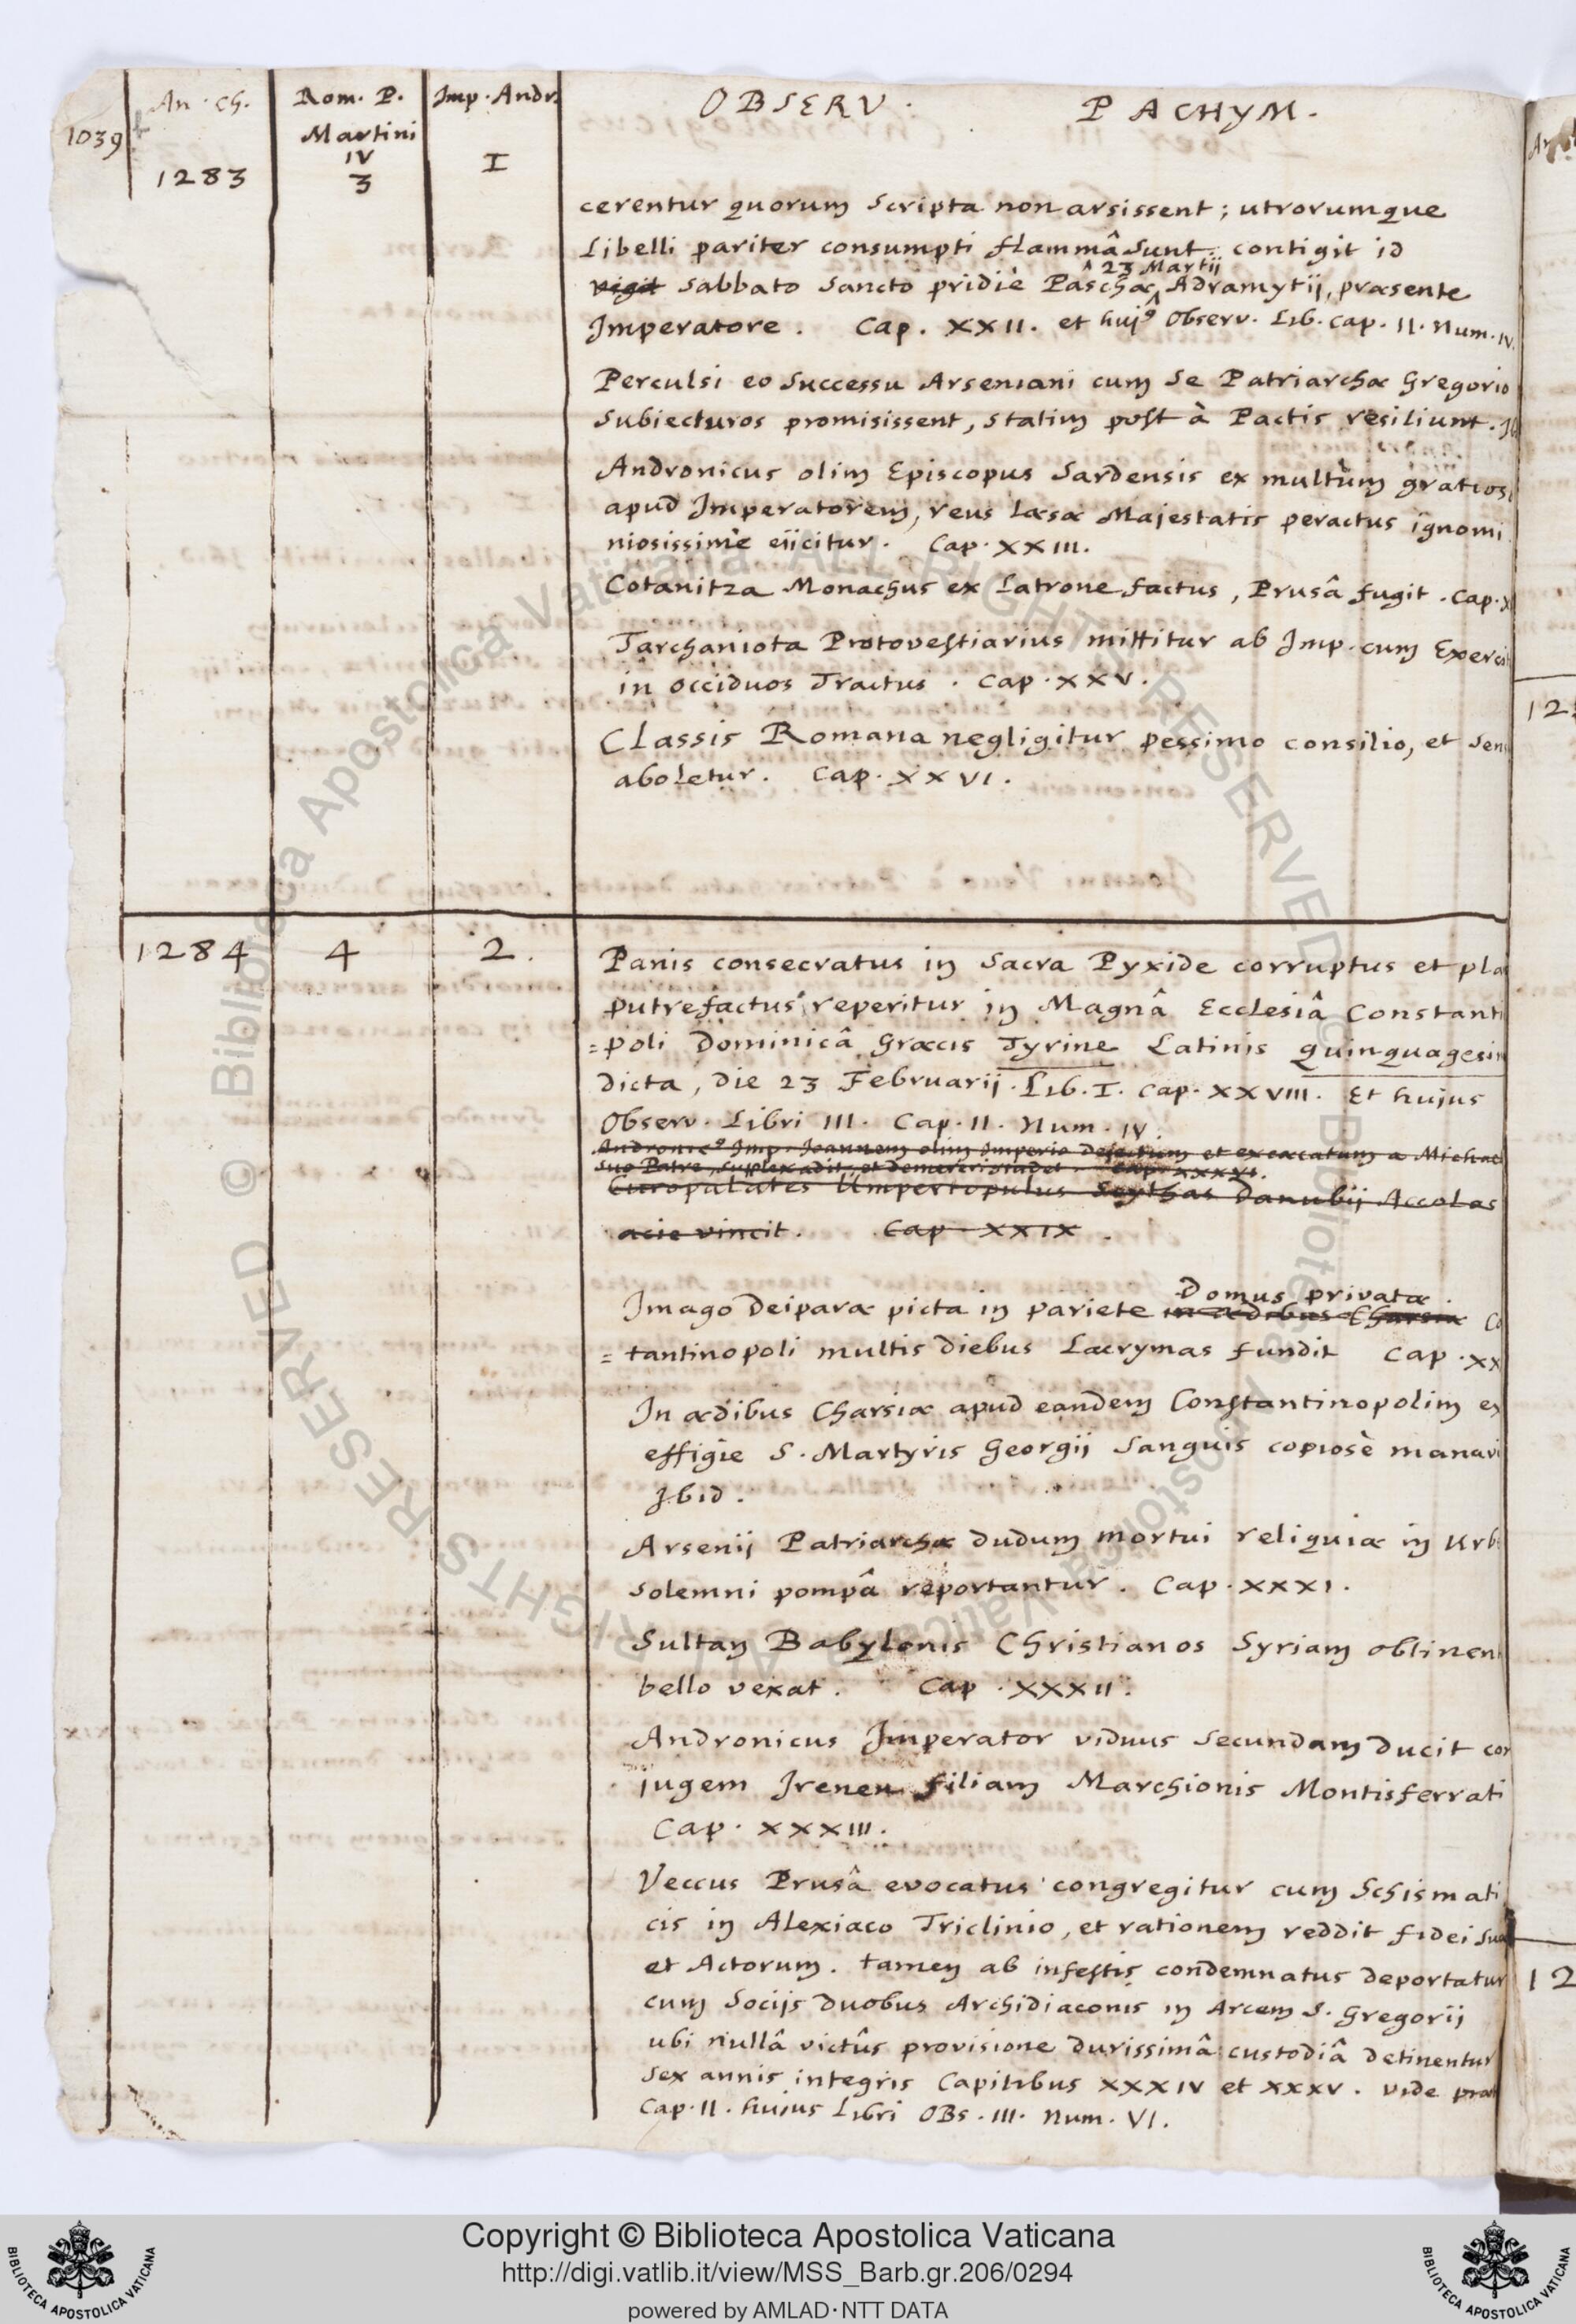 An. Ch. Rom. P. Imp. Andr. OBSERV. PACHYM.
1039 Martini
IV
1283 3 I
cerentur quorum scripta non arsissent; utrorumque
Libelli pariter consumpti flammâ sunt. contigit id
vigit Sabbato Sancto pridiè Paschæ ^ 23 Martij Adramytij, præsente
Imperatore. Cap. XXII. et huj9 Observ. Lib. cap. II. Num. IV.
Perculsi eo successu Arseniani cum se Patriarchæ Gregorio
subiecturos promisissent, statim post à Pactis resiliunt.
Andronicus olim Episcopus Sardensis ex multùm gratios
apud Imperatorem, reus læsæ Majestatis peractus ignomi
niosissimè eiicitur. Cap. XXIII.
Cotanitza Monachus ex Latrone factus, Prusâ fugit. Cap. X
Tarchaniota Protovestiarius mittitur ab Imp. cum Exerci
in occiduos Tractus. Cap. XXV.
Classis Romana negligitur pessimo consilio, et sen
aboletur. Cap. XXVI.
1284 4 2.
Panis consecratus in Sacra Pyxide corruptus et pla
putrefactus reperitur in Magnâ Ecclesiâ Constanti
=poli Dominicâ Græcis Tyrine Latinis quinquagesim
dicta, die 23 Februarij. Lib. I. Cap. XXVIII. Et hujus
Observ. Libri III. Cap. II. Num. IV.
Andronic9 Imp. Joannem olim Imperio dejectum et excæcatum a Michae
suo Patre, supplex adit, et demereri studet. Cap. XXXVI.
Curopalates Umpertopulus Scythas Danubij Accolas
acie vincit. Cap XXIX.
Imago Deiparæ picta in pariete in ædibus Charsiæ Domus privatæ. Co
=tantinopoli multis diebus Lacrymas fundit Cap. XX
In ædibus Charsiæ apud eandem Constantinopolim ex
effigie S. Martyris Georgij Sanguis copiosè manavi
Ibid.
Arsenij Patriarchæ dudum mortui reliquiæ in Urb
solemni pompâ reportantur. Cap. XXXI.
Sultan Babylonis Christianos Syriam obtinent
bello vexat. Cap. XXXII.
Andronicus Imperator viduus secundam ducit con
jugem Irenen filiam Marchionis Montisferrati
Cap. XXXIII.
Veccus Prusâ evocatus congregitur cum Schismati
cis in Alexiaco Triclinio, et rationem reddit fidei suæ
et Actorum. tamen ab infestis condemnatus deportatur
cum Socijs duobus Archidiaconis in Arcem S. Gregorij
ubi nullâ victûs provisione durissimâ custodiâ detinentur
sex annis integris Capitibus XXXIV et XXXV. vide
Cap. II. hujus Libri OBs. III. Num. VI.
12
12
© Biblioteca Apostolica Vaticana ALL RIGHTS RESERVED
Copyright © Biblioteca Apostolica Vaticana
http://digi.vatlib.it/view/MSS_Barb.gr.206/0294
powered by AMLAD·NTT DATA
BIBLIOTECA APOSTOLICA VATICANA
BIBLIOTECA APOSTOLICA VATICANA